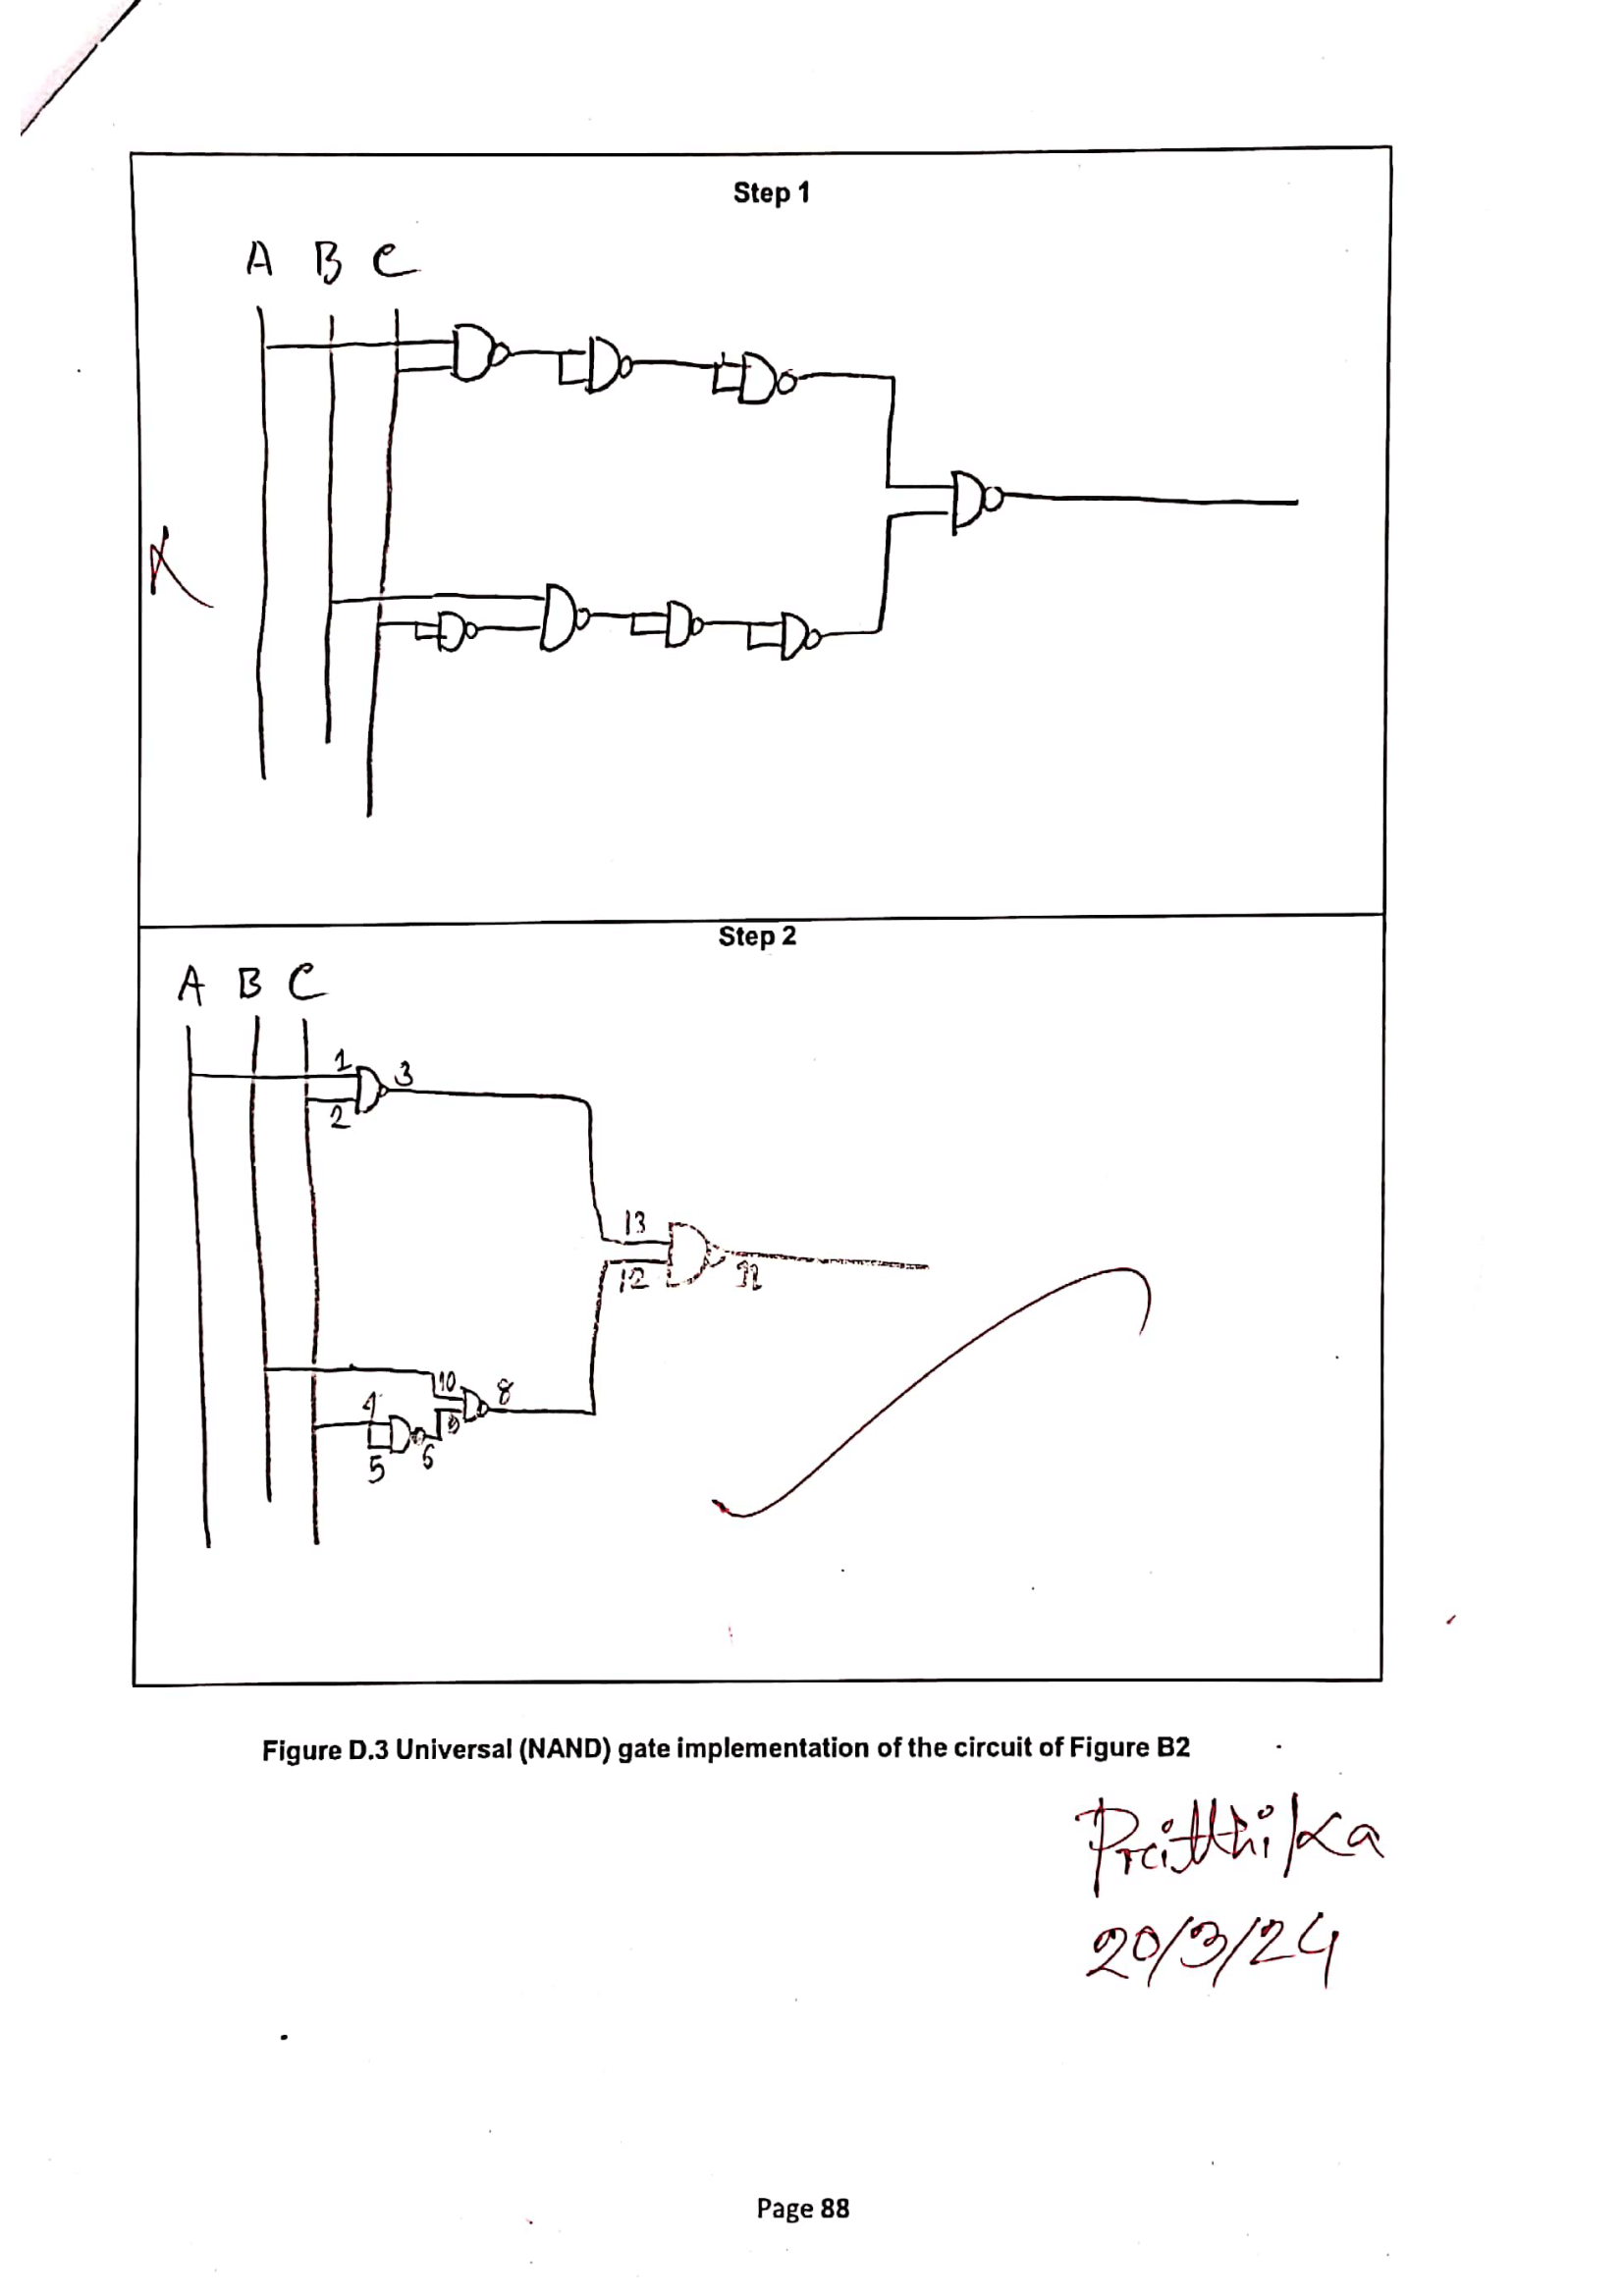 Step 1
A B C
Step 2
A B C
1
3
2
13
12
11
10
8
4
9
5
6
Figure D.3 Universal (NAND) gate implementation of the circuit of Figure B2
20/3/24
Page 88